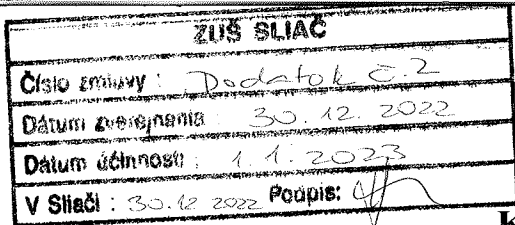 ZUŠ SLIAČ
Číslo zmluvy : Dodatok č.2
Dátum zverejnenia : 30.12.2022
Dátum účinnosti : 1.1.2023
V Sliači : 30.12 2022 Podpis: